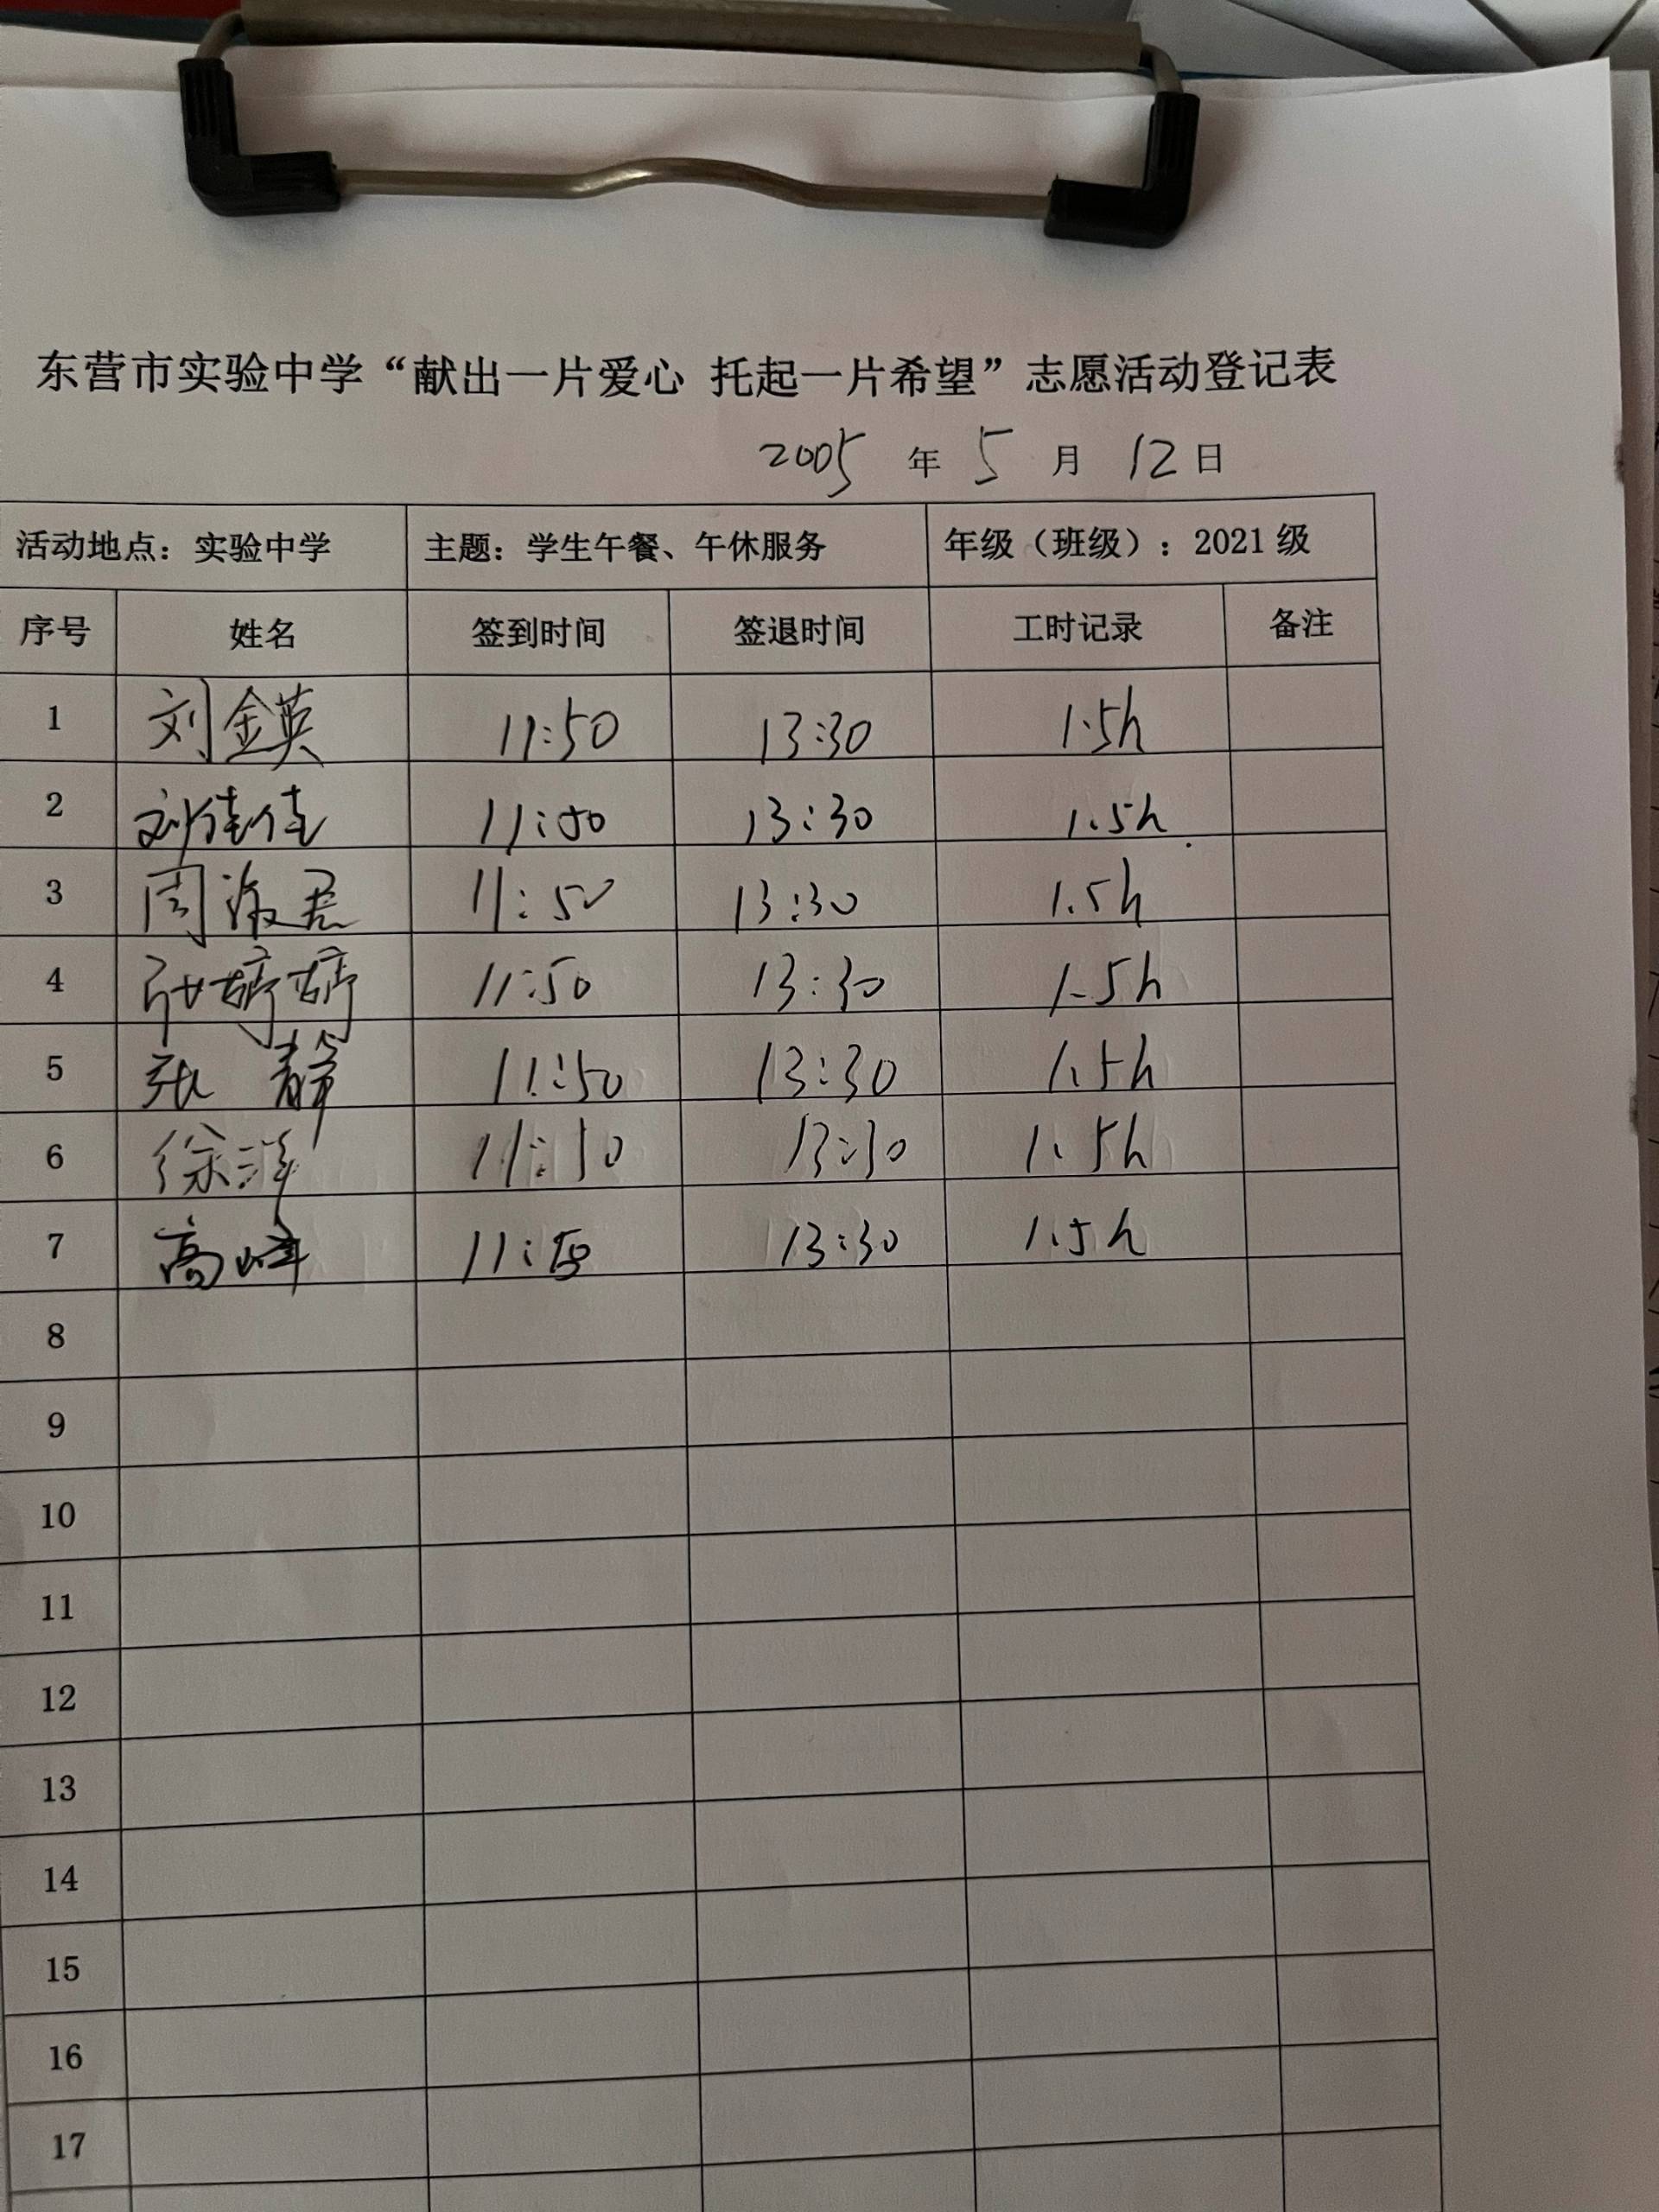 东营市实验中学“献出一片爱心 托起一片希望”志愿活动登记表
2005 年 5 月 12 日
活动地点：实验中学 主题：学生午餐、午休服务 年级（班级）：2021 级
序号 姓名 签到时间 签退时间 工时记录 备注
1 刘金英 11:50 13:30 1.5h
2 刘佳佳 11:50 13:30 1.5h
3 周 11:50 13:30 1.5h
4 婷婷 11:50 13:30 1.5h
5 张静 11:50 13:30 1.5h
6 徐洋 11:50 13:30 1.5h
7 高峰 11:50 13:30 1.5h
8
9
10
11
12
13
14
15
16
17